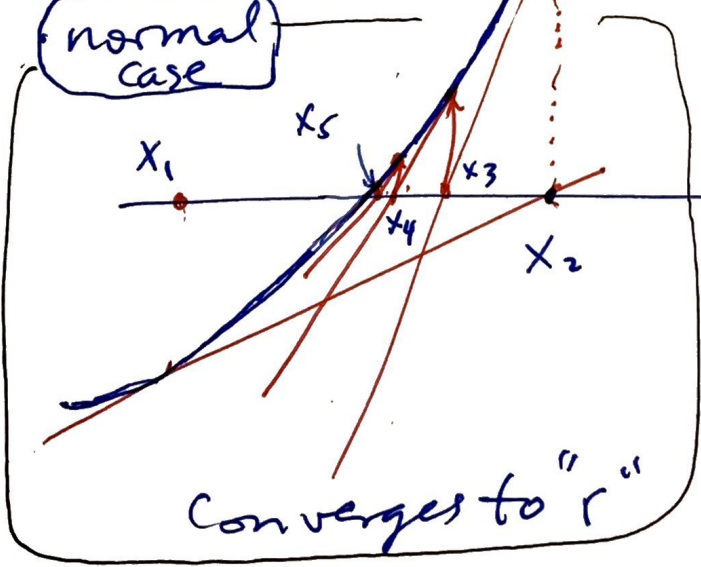 normal
case
x5
x1
x3
x4
x2
Converges to "r"